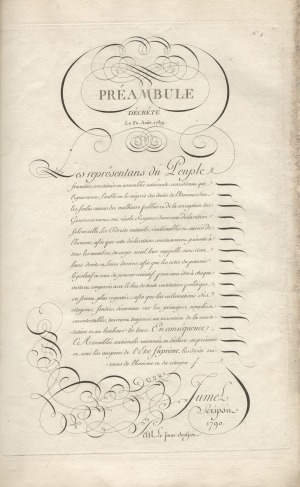 PRÉAMBULE
DÉCRÉTÉ
Le 20. Août. 1789.
Les représentans du Peuple
françois, constitués en assemblée nationale, considérant que
l'ignorance, l'oubli ou le mépris des droits de l'homme sont
les seules causes des malheurs publics et de la corruption des
Gouvernemens, ont résolu d'exposer dans une déclaration
solennelle, les droits naturels, inaliénables et sacrés de
l'homme, afin que cette déclaration, constamment présente à
tous les membres du corps social, leur rappelle sans cesse
leurs droits et leurs devoirs; afin que les actes du pouvoir
législatif et ceux du pouvoir exécutif, pouvant être à chaque
instant comparés avec le but de toute institution politique,
en soient plus respectés; afin que les réclamations des
citoyens, fondées désormais sur des principes simples et
incontestables, tournent toujours au maintien de la consti-
tution et au bonheur de tous. En conséquence,
l'Assemblée nationale reconnoît et déclare, en présence
et sous les auspices de l'Être Suprême, les droits sui-
vans de l'homme et du citoyen.
Jumel
Scripsit
1790.